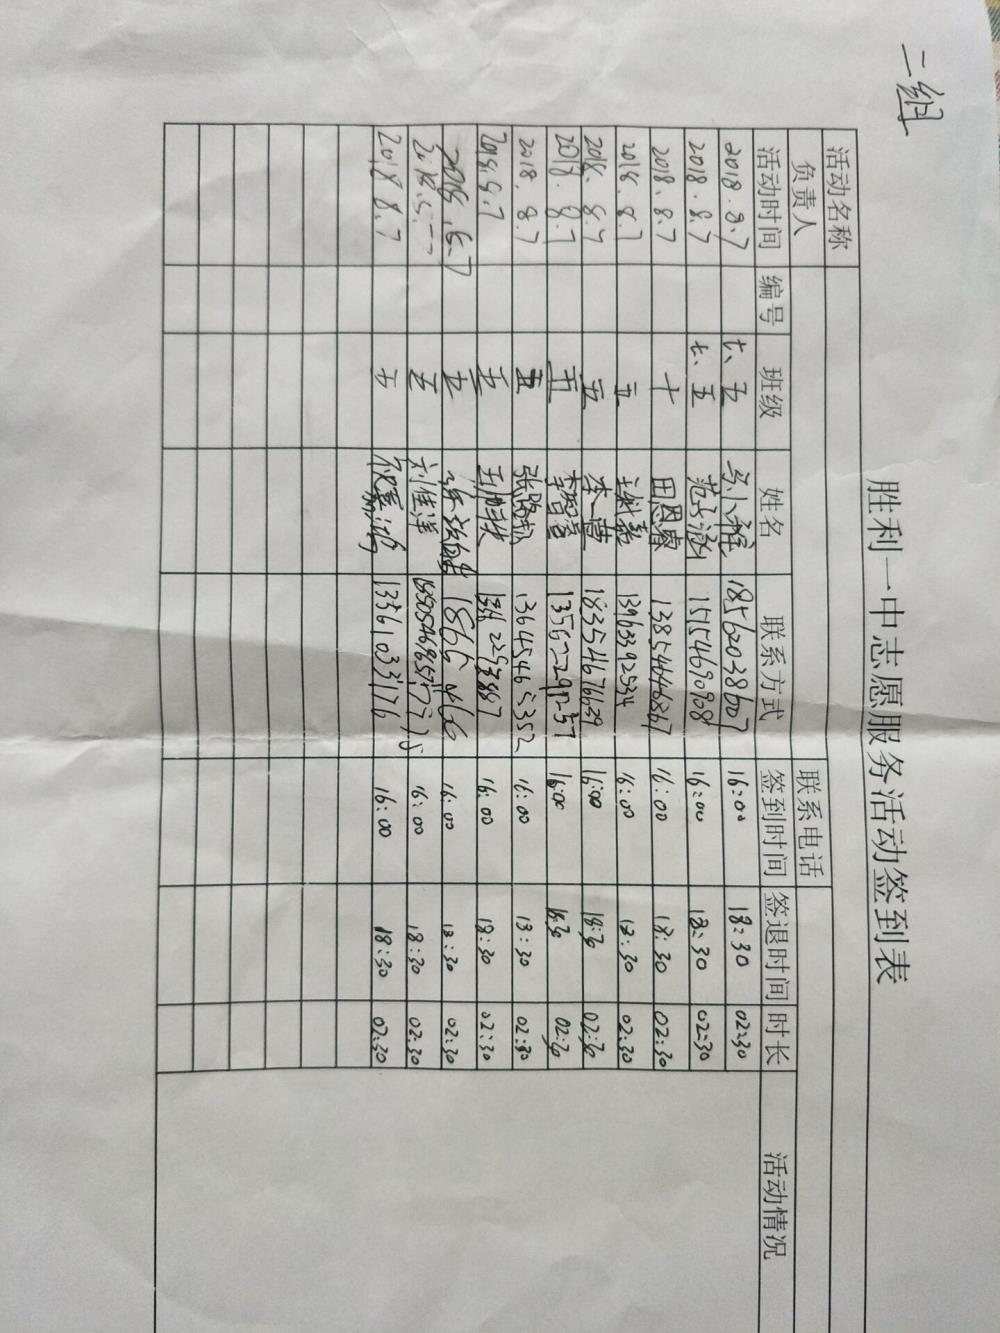 二组
胜利一中志愿服务活动签到表
活动名称
负责人 联系电话
活动时间 编号 班级 姓名 联系方式 签到时间 签退时间 时长 活动情况
2018.8.7 七、五 18562038607 16:00 18:30 02:30
2018.8.7 七、五 15154690908 16:00 18:30 02:30
2018.8.7 十 田恩睿 16:00 18:30 02:30
2018.8.7 五 谢嘉 13963392534 16:00 18:30 02:30
2018.8.7 五 李一萱 18354676639 16:00 18:30 02:30
2018.8.7 五 李智睿 16:00 18:30 02:30
2018.8.7 五 13645465352 16:00 18:30 02:30
2018.8.7 五 16:00 18:30 02:30
2018.8.7 五 16:00 18:30 02:30
五 刘佳洋 16:00 18:30 02:30
2018.8.7 五 13561033176 16:00 18:30 02:30